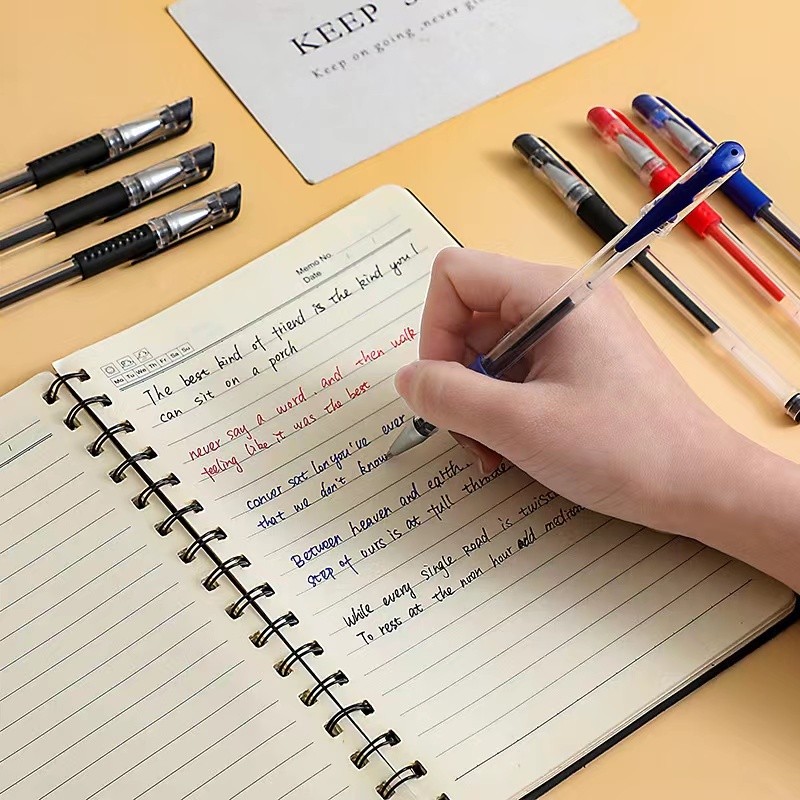 KEEP
Keep on going never gi
Memo No.
Date
Mo Tu We Th Fr Sa Su
The best kind of friend is the kind you!
can sit on a porch
never say a word. and then walk
feeling like it was the best
conver sat you've ever
that we don't know
Between heaven and earth.
step of ours is at full
While every single road is twist
To rest at the noon hour add